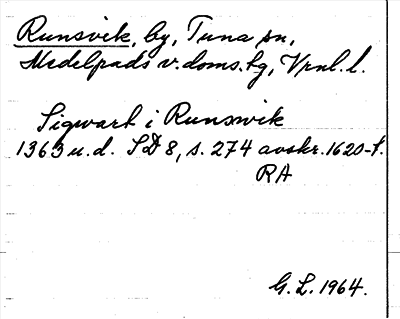 Runsvik, by, Tuna sn,
Medelpads v. doms. hg, Vrnl. l.
Sigwart i Runswik
1363 u.d. SD 8, s. 274 avskr. 1620-t.
RA
G. L. 1964.